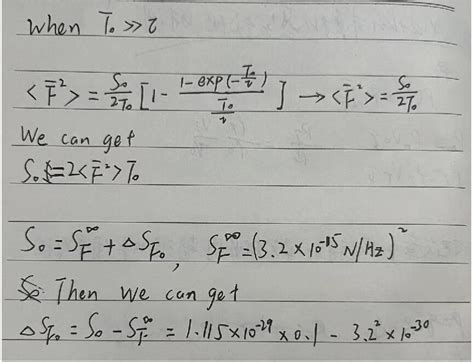 When T₀ ≫ τ
< F̄² > = S₀/2T₀ [1 - (1-exp(-T₀/τ))/(T₀/τ)] → < F̄² > = S₀/2T₀
We can get
S₀ = 2< F̄² > T₀
S₀ = S_F^∞ + ΔS_F₀ , S_F^∞ = (3.2 × 10⁻¹⁵ N/Hz)²
Then we can get
ΔS_F₀ = S₀ - S_F^∞ = 1.115×10⁻²⁹ × 0.1 - 3.2² × 10⁻³⁰